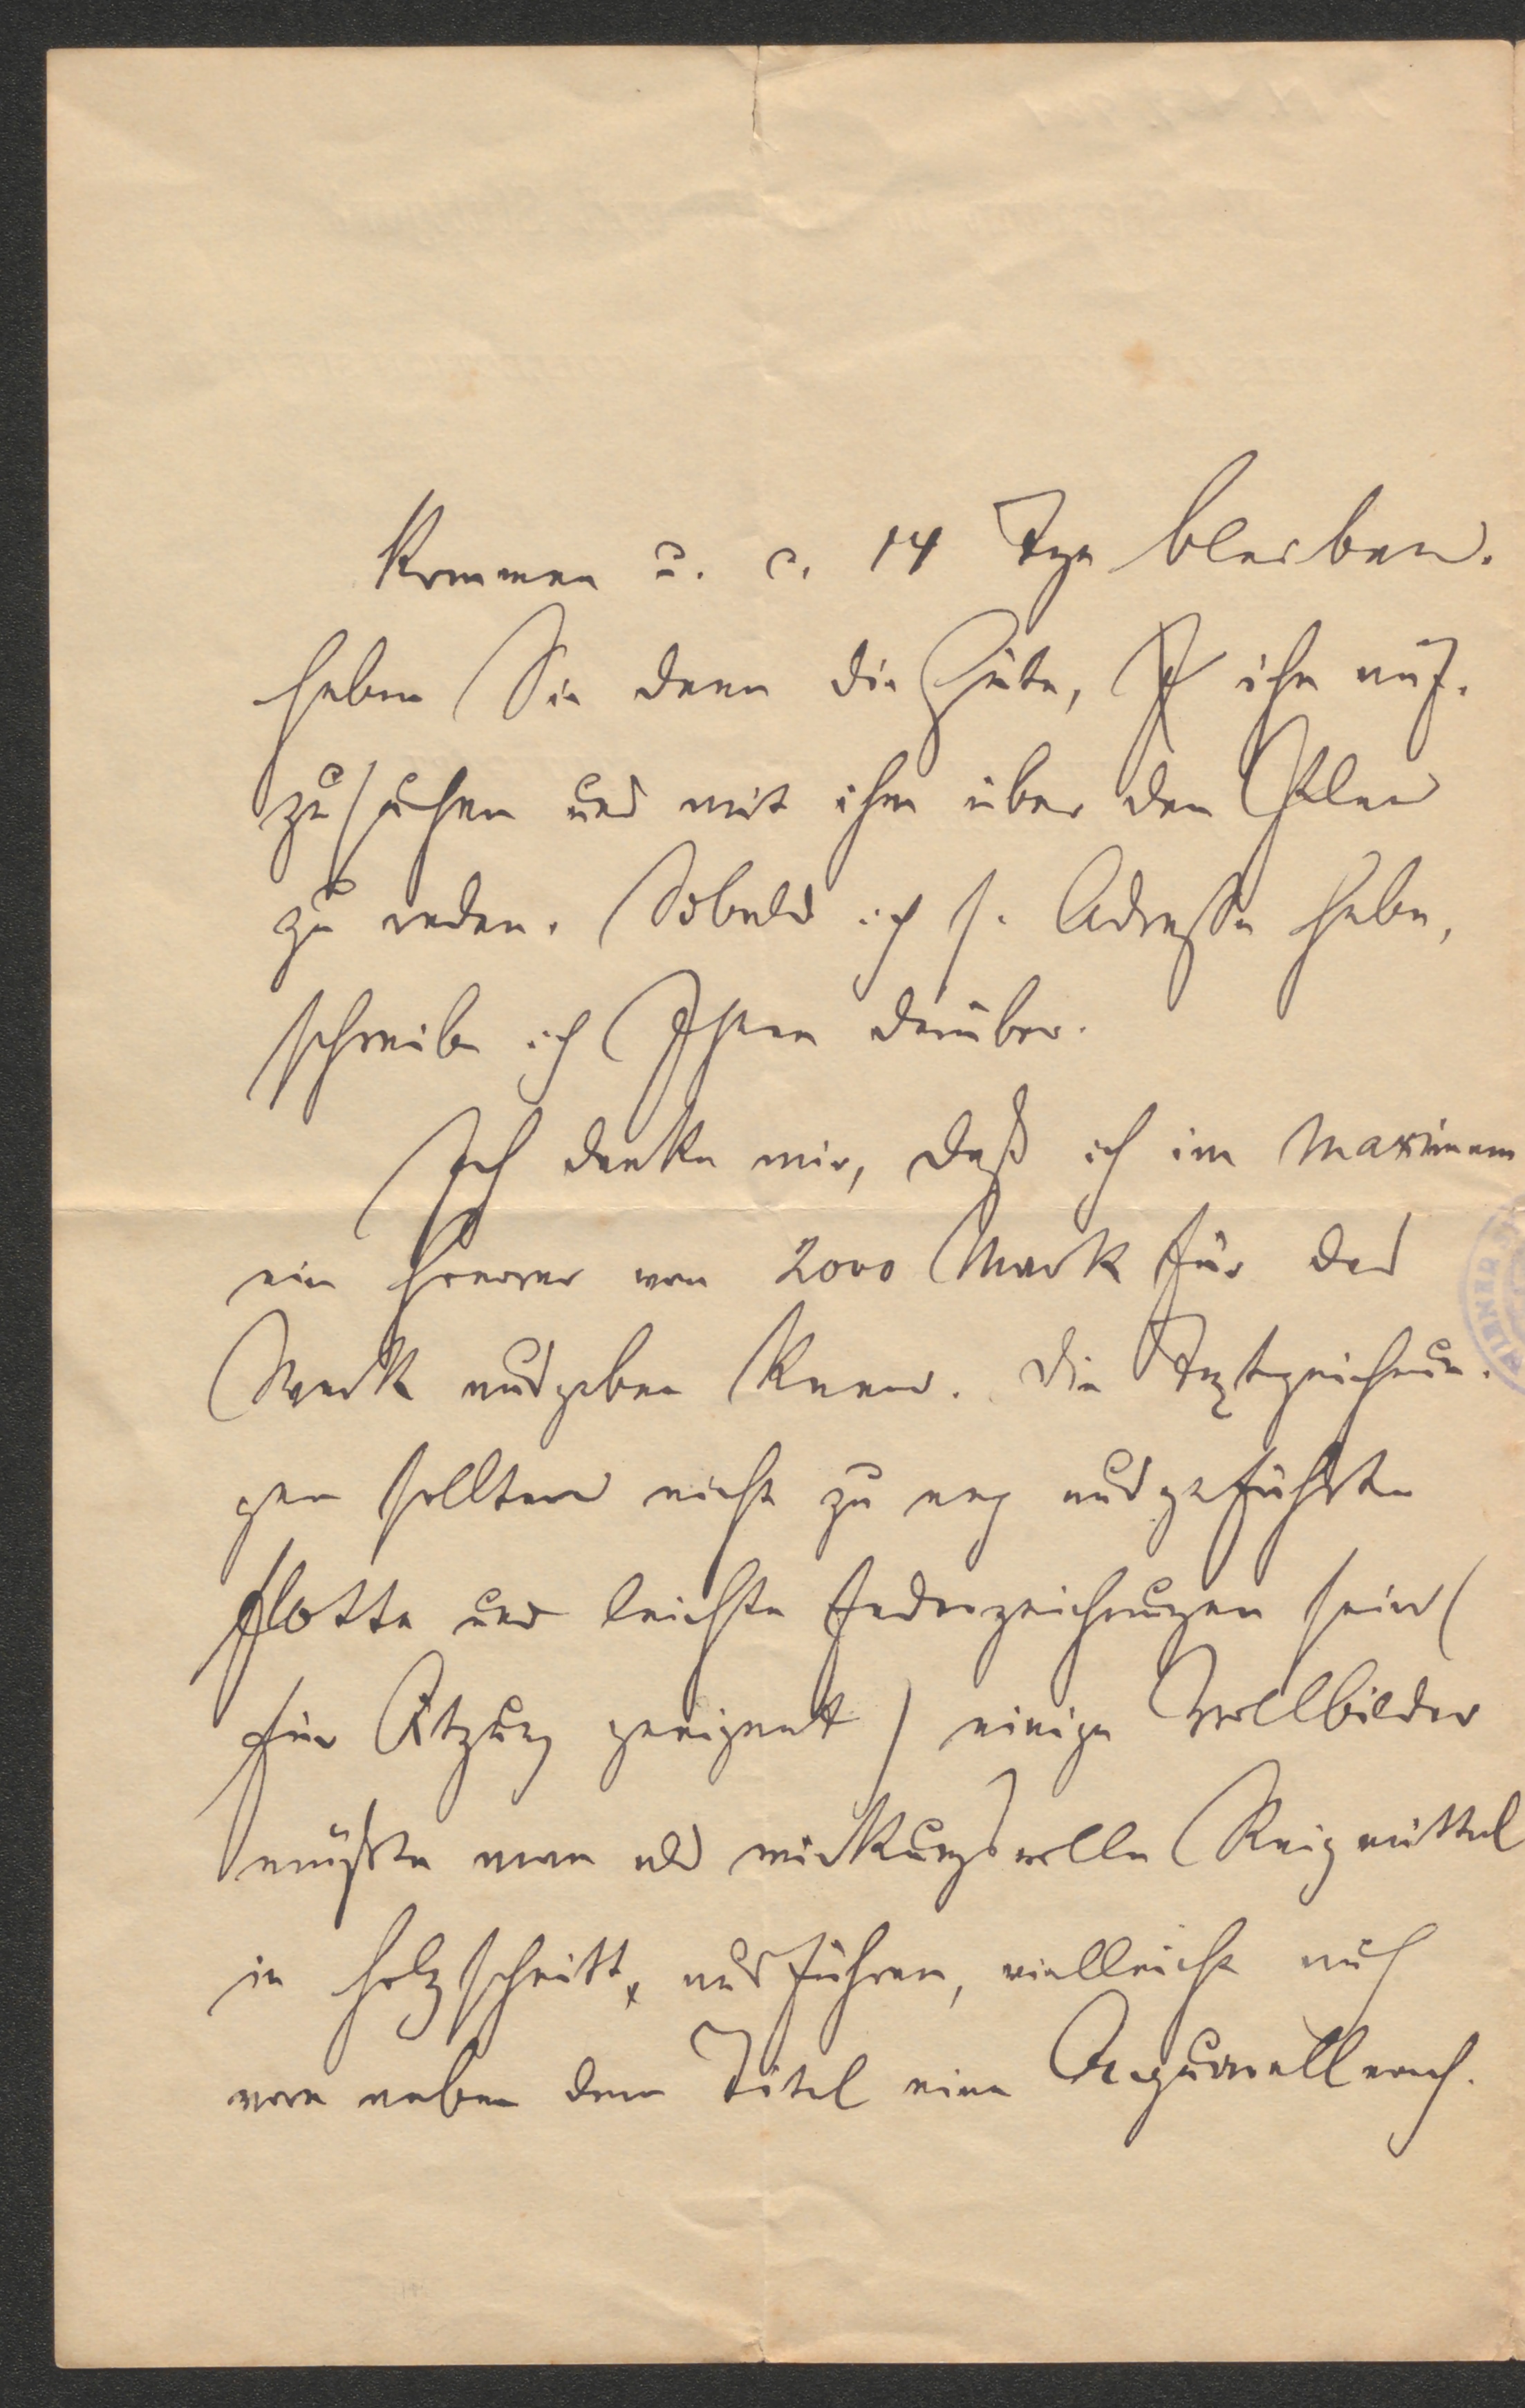 kommen u. c. 14 Tge bleiben.
Haben Sie dann die Güte, ihn auf-
zusuchen und mit ihm über den Plan
zu reden. Sobald ich s. Adresse habe,
schreibe ich Ihnen darüber.
Ich denke mir, daß ich im Maximum
ein Honorar von 2000 Mark für das
Werk ausgeben kann. Die Textzeichnun-
gen sollten nicht zu eng ausgeführte
flotte und leichte Federzeichnungen sein (
für Ätzung geeignet) einige Vollbilder
müßte man als wirkungsvolle Reizmittel
in Holzschnitt, ausführen, vielleicht auch
vorn neben dem Titel eine Aquarellnach-